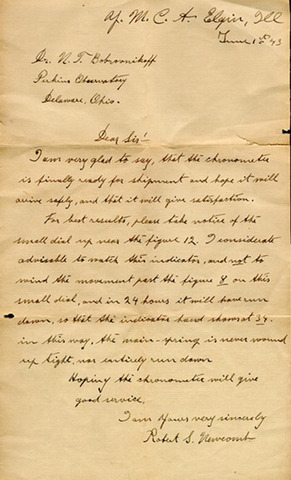 Y. M. C. A. Elgin, Ill
June 1st 43
Dr. N. T. Bobrovnikoff
Perkins Observatory
Delaware, Ohio.
Dear Sir:-
I am very glad to say, that the chronometer
is finally ready for shipment and hope it will
arrive safely, and that it will give satisfaction.
For best results, please take notice of the
small dial up near the figure 12. I considerate
advisable to watch this indicator, and not to
wind the movement past the figure 8 on this
small dial, and in 24 hours it will have run
down, so that the indicator hand shows at
in this way, the main-spring is never wound
up tight, nor entirely run down
Hoping the chronometer will give
good service,
I am yours very sincerely
Robert S. Newcomb